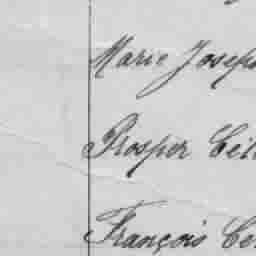 Marie Joseph
Prosper
François